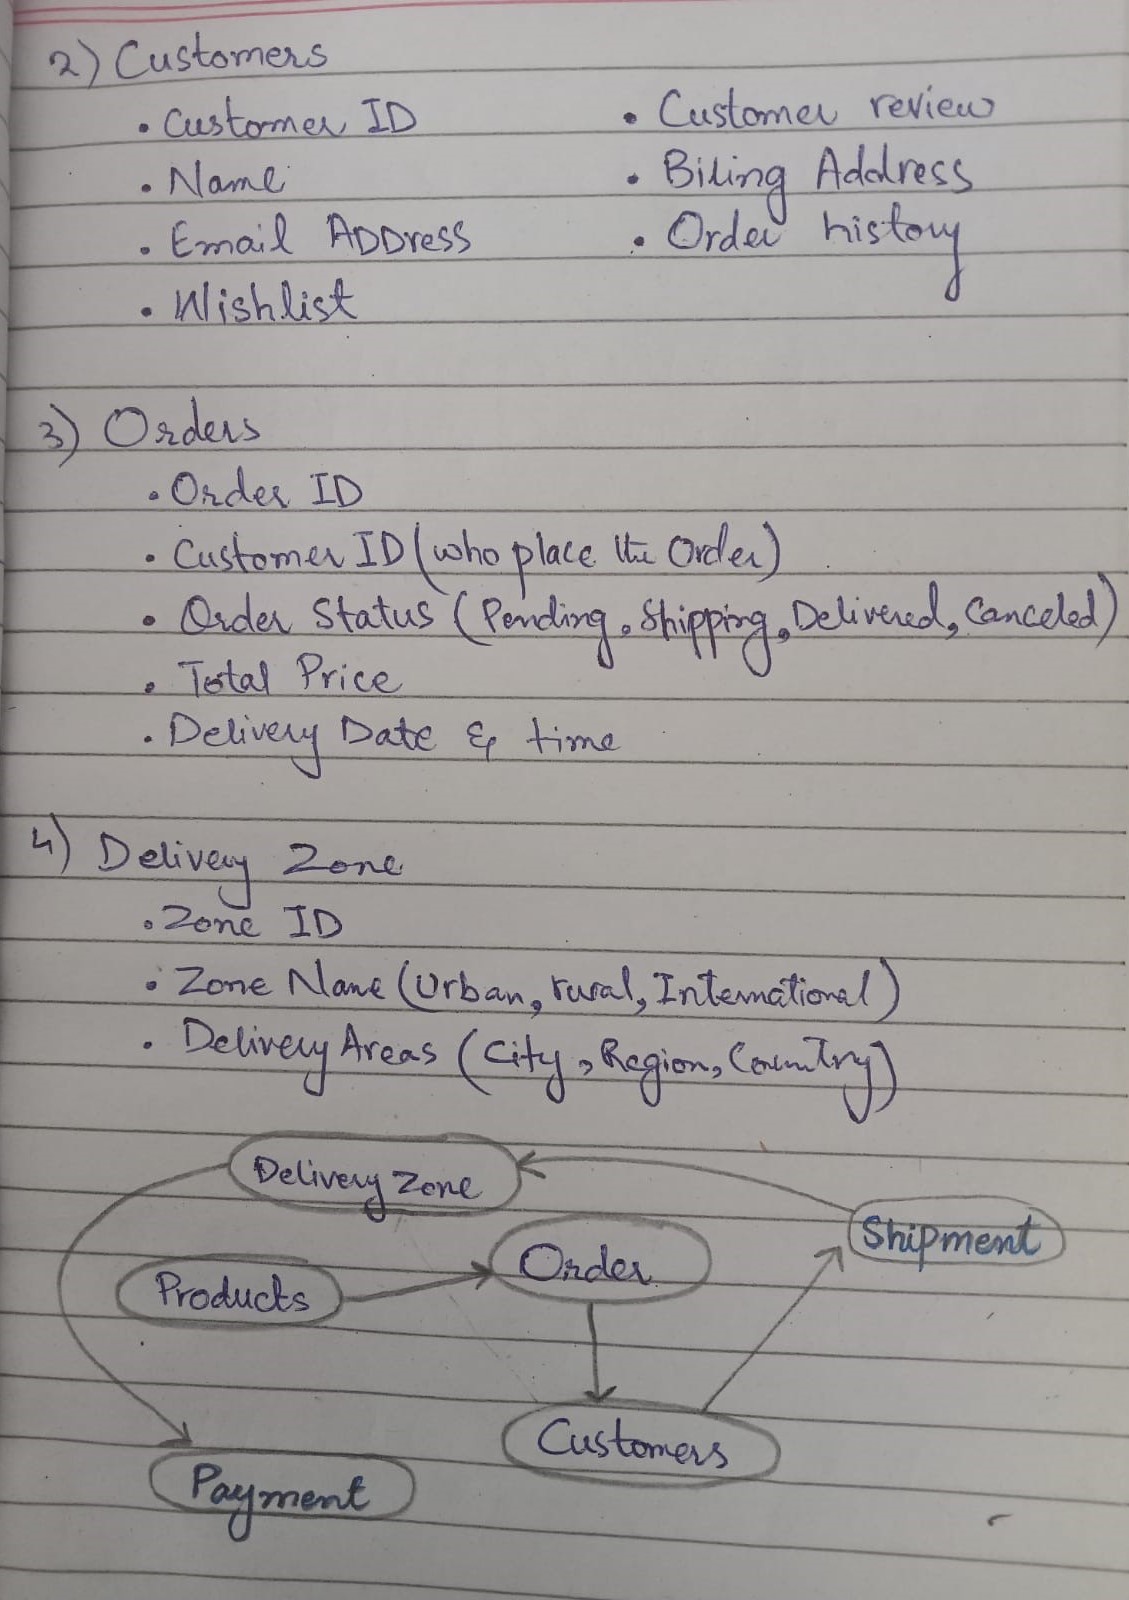 2) Customers
• Customer ID
• Name
• Email Address
• Wishlist
• Customer review
• Biling Address
• Order history
3) Orders
• Order ID
• Customer ID (who place the Order)
• Order Status (Pending, Shipping, Delivered, Canceled)
• Total Price
• Delivery Date & time
4) Delivery Zone
• Zone ID
• Zone Name (Urban, rural, International)
• Delivery Areas (City, Region, Country)
Delivery Zone
Shipment
Order
Products
Customers
Payment